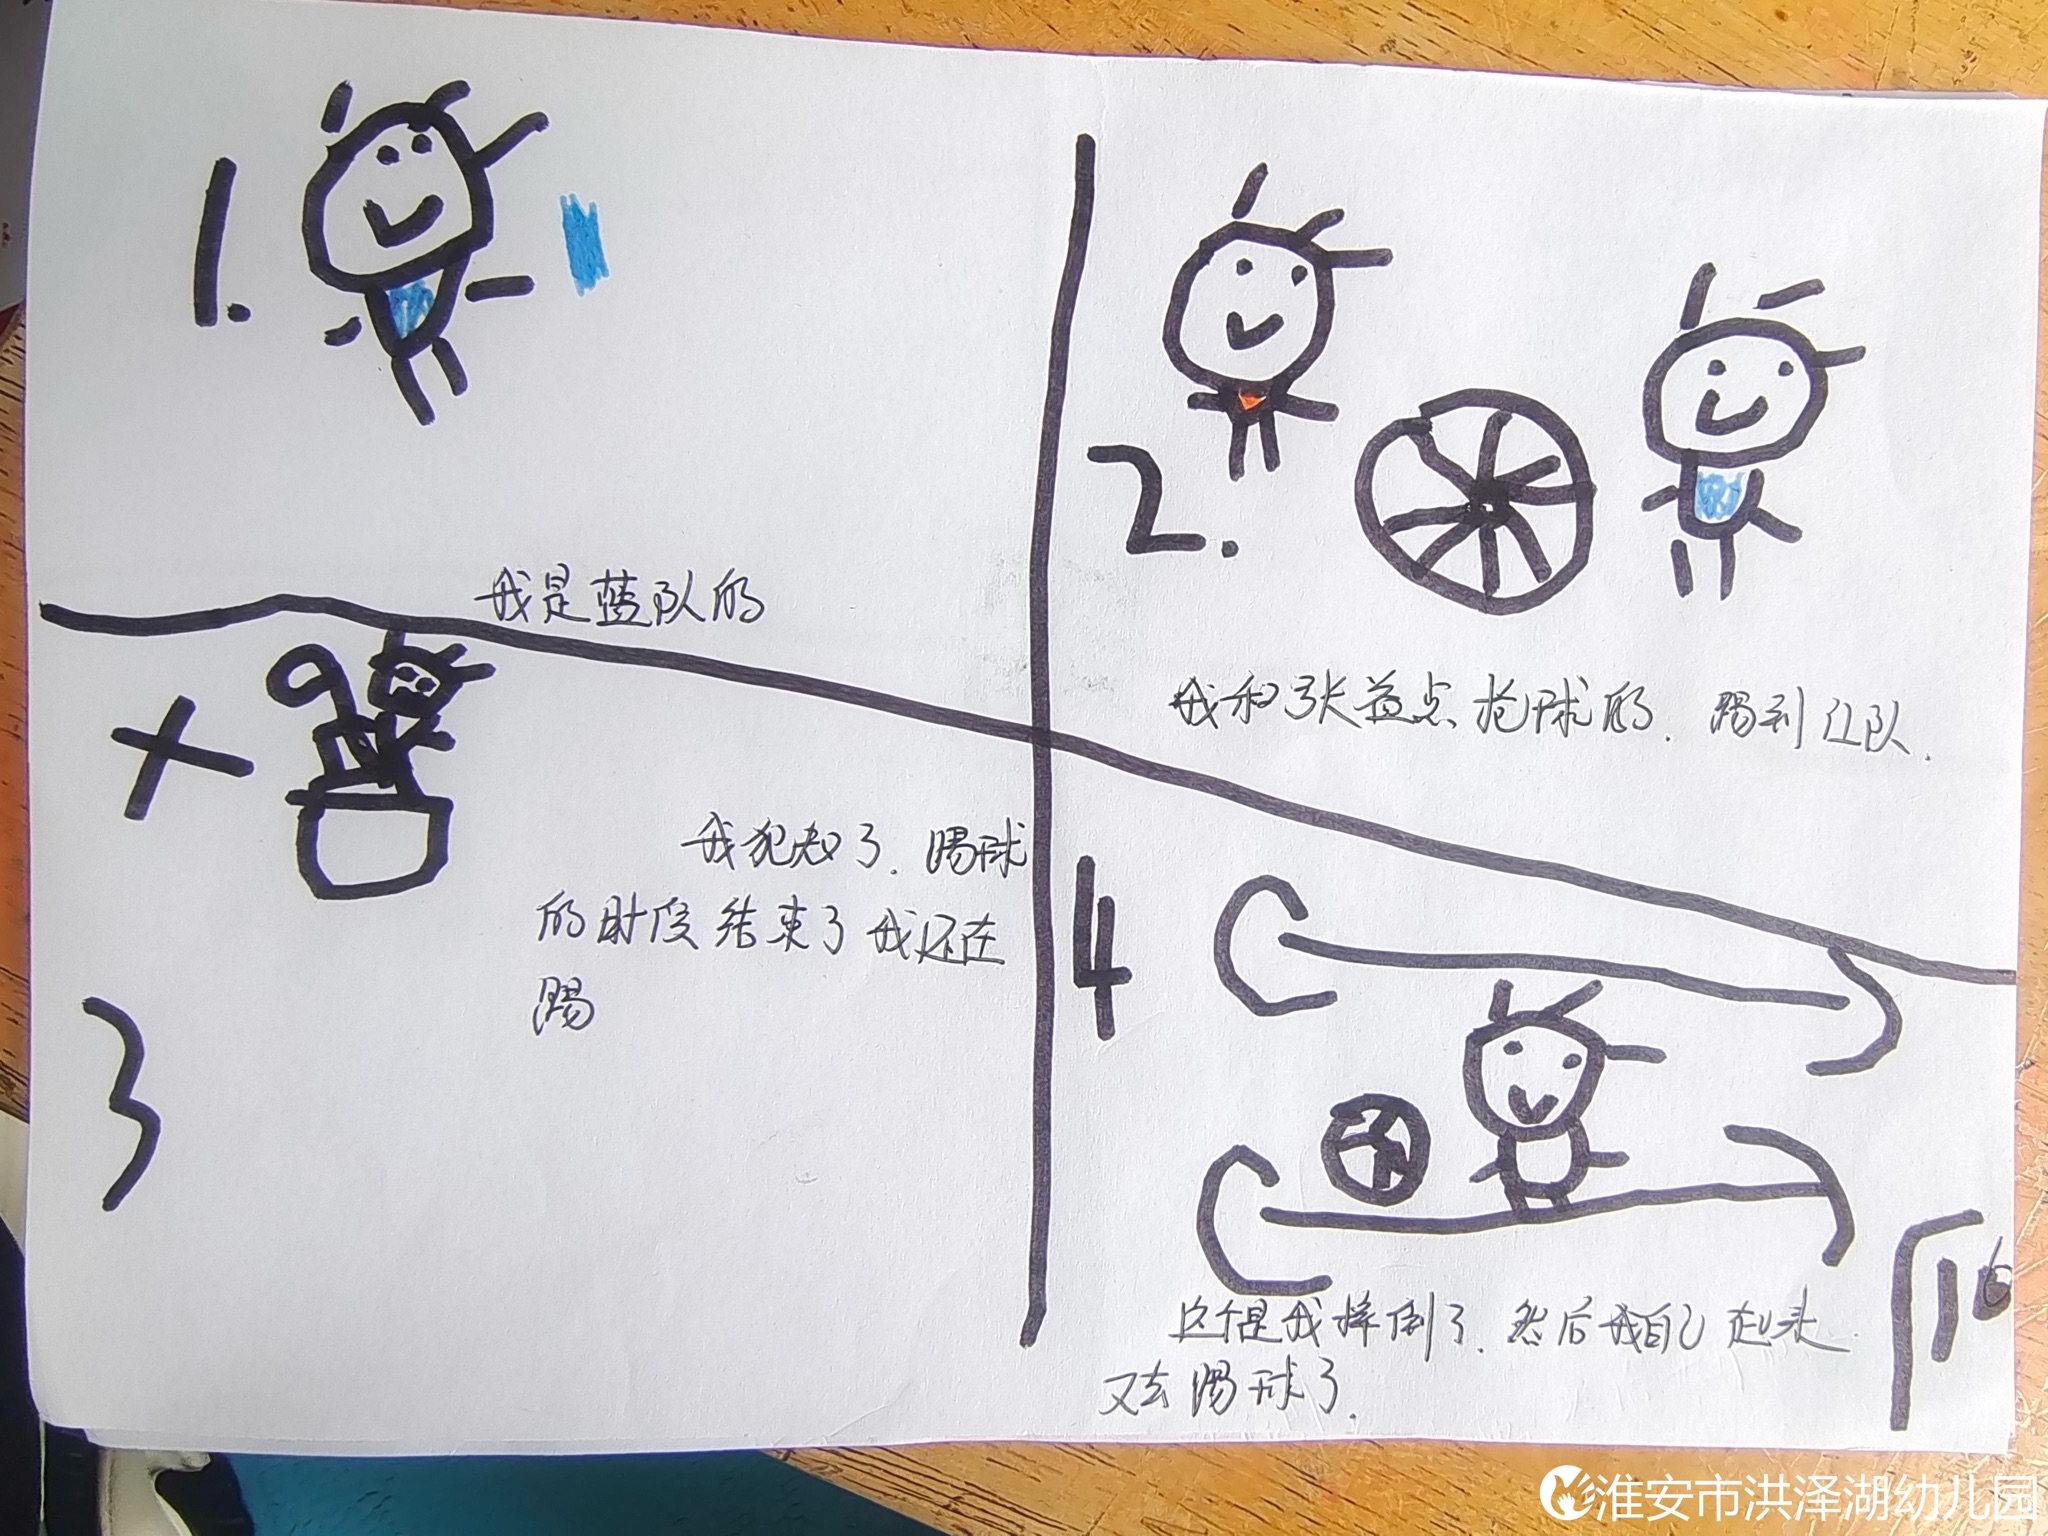 1.
我是蓝队的
2.
我和张益点抢球的.踢到红队.
3
我犯规了.踢球
的时候结束了我还在
踢
4
这个是我摔倒了.然后我自己起来.
又去踢球了.
淮安市洪泽湖幼儿园